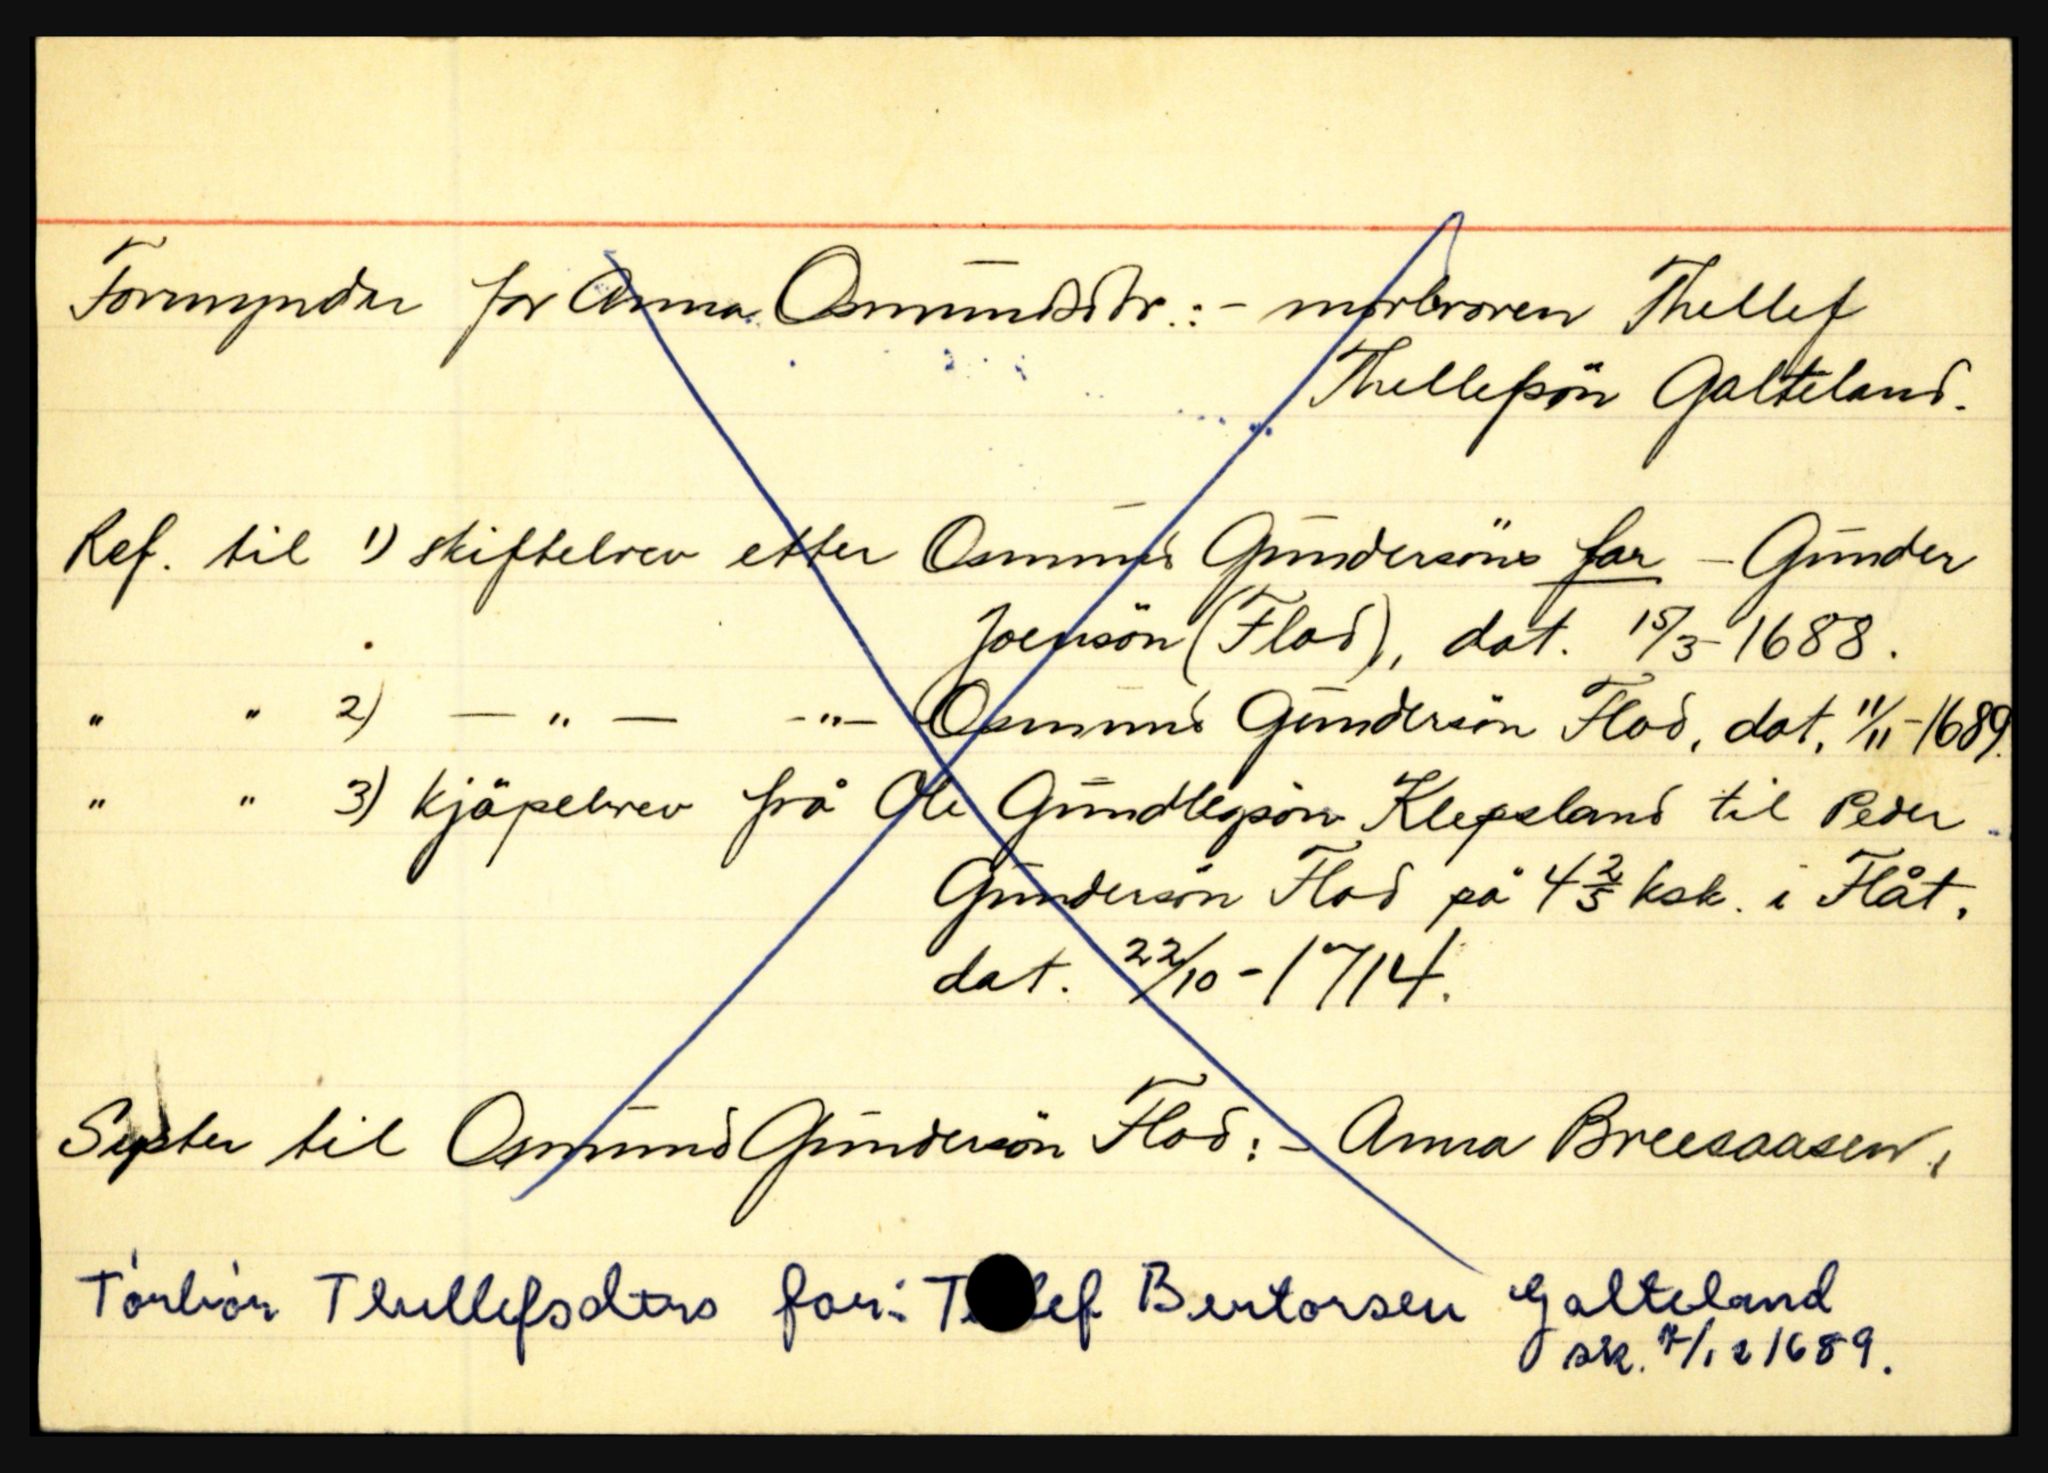 Formynder for Anna Osmundsdtr.: - morbroren Thellef
Thellefsön Galteland.
Ref. til 1) skiftebrev etter Osmund Gundersöns far - Gunder
Joensön (Flad), dat. 15/3-1688.
" " 2) — " — -"- Osmund Gundersön Flad, dat. 11/11-1689.
" " 3) kjöpebrev frå Ole Gundlegsön Klepsland til Peder
Gundersön Flad på 4 2/5 ksk. i Flåt,
dat. 22/10-1714.
Syster til Osmund Gundersön Flad: - Anna Breesaasen,
Torbiør Thellefsdtrs far: Bertorsen Galteland
sk. /12 1689.